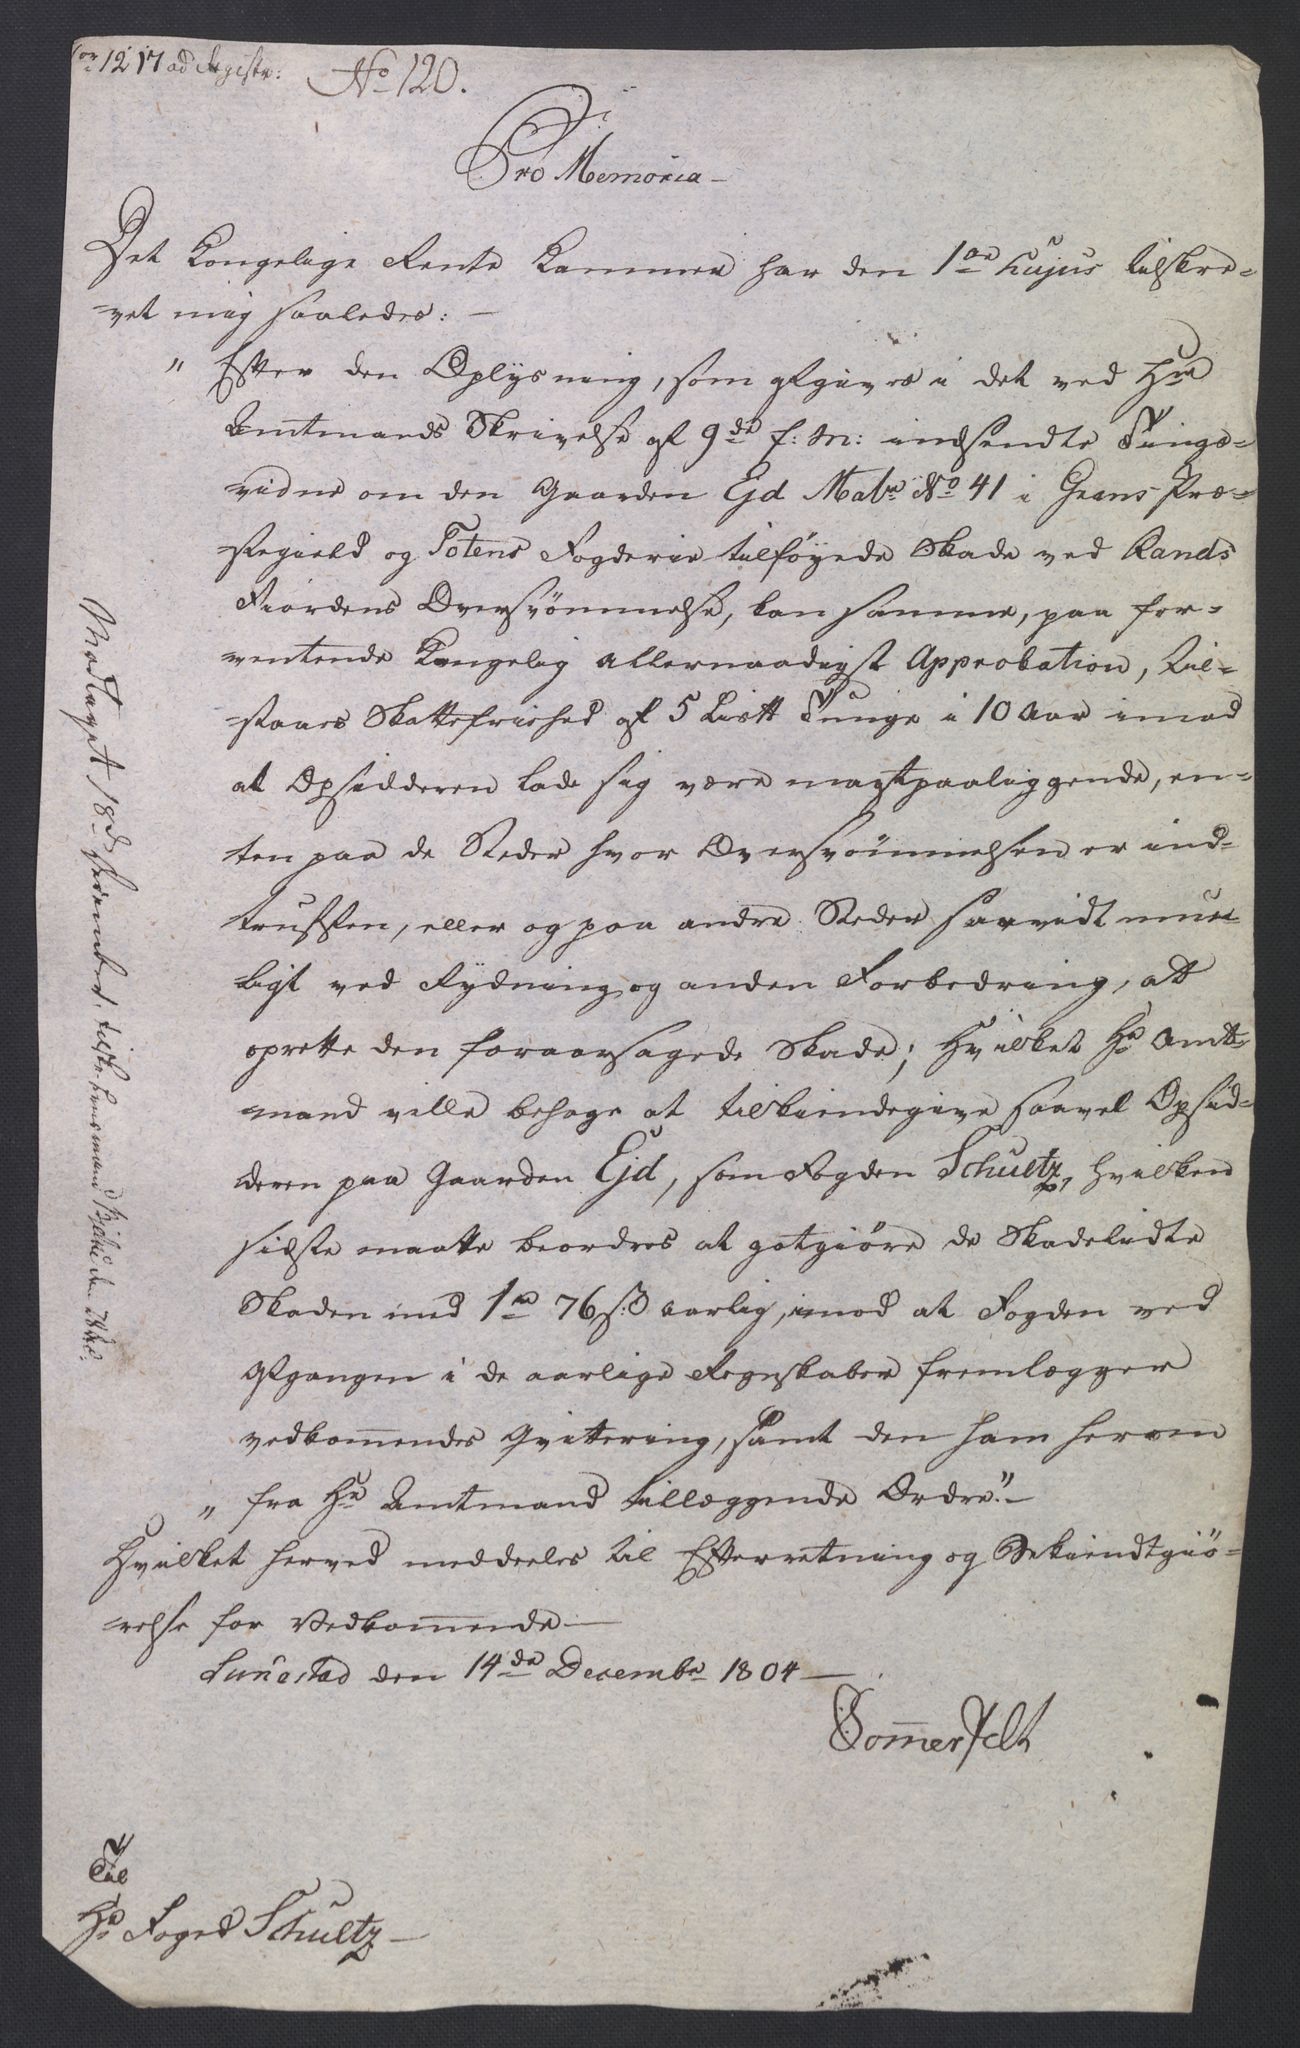 1217 ad Registr:
No 120.
Pro Memoria
Det Kongelige Rente Kammer har den 1ste hujus tilskre-
vet mig saaledes: —
" Efter den Oplysning, som gives i det ved Hr
Amtmands Skrivelse af 9de f: M: indsendte Tings-
vidne om den Gaarden Ejd Matr No 41 i Grans Præ-
stegield og Totens Fogderie tilføyede Skade ved Rands
Fiordens Oversvømmelse, kan samme, paa for-
ventende Kongelig allernaadigst Approbation, til-
staaes Skattefriehed af 5 Lis℔ Tunge i 10 Aar imod
at Opsidderen lade sig være magtpaaliggende, en-
ten paa de Steder hvor Oversvømmelsen er ind-
truffen, eller og paa andre Steder saavidt mue-
ligt ved Rydning og anden Forbedring, at
oprette den foraarsagede Skade; hvilket Hr Amt-
mand ville behage at tilkiendegive saavel Opsid-
deren paa Gaarden Ejd, som Fogden Schultz, hvilken
sidste maatte beordres at gotgiøre de Skadelidte
Skaden med 1rd 76 s: aarlig, imod at Fogden ved
Afgangen i de aarlige Regnskaber fremlægger
vedkom̄endes Qvittering, samt den ham herom
" fra Hr Amtmand tillæggende Ordre." —
Hvilket herved meddeeles til Efterretning og Bekiendtgiø-
relse for Vedkom̄ende —
den 14de Decembr 1804 —
Som̄erfeldt
Til
Hr Foged Schultz —
Modtaget 18de Decembr,